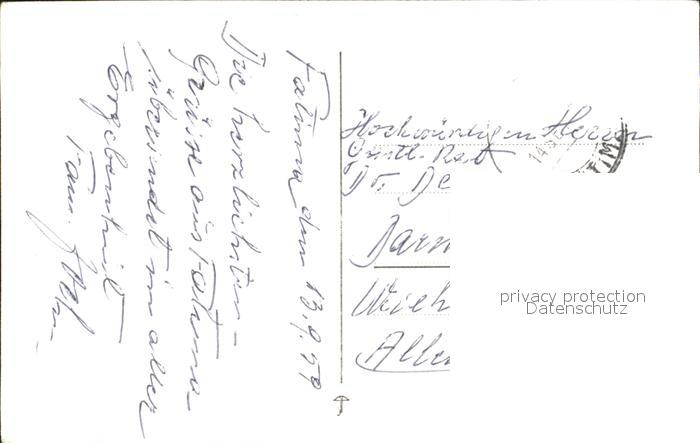 Fatima den 13.9.59
Die herzlichsten
Grüße aus Fatima
übersendet in aller
Ergebenheit
Fam.
Hochwürdigen Herrn
Geistl. Rat
Dr. De
Darm
Allee
privacy protection
Datenschutz